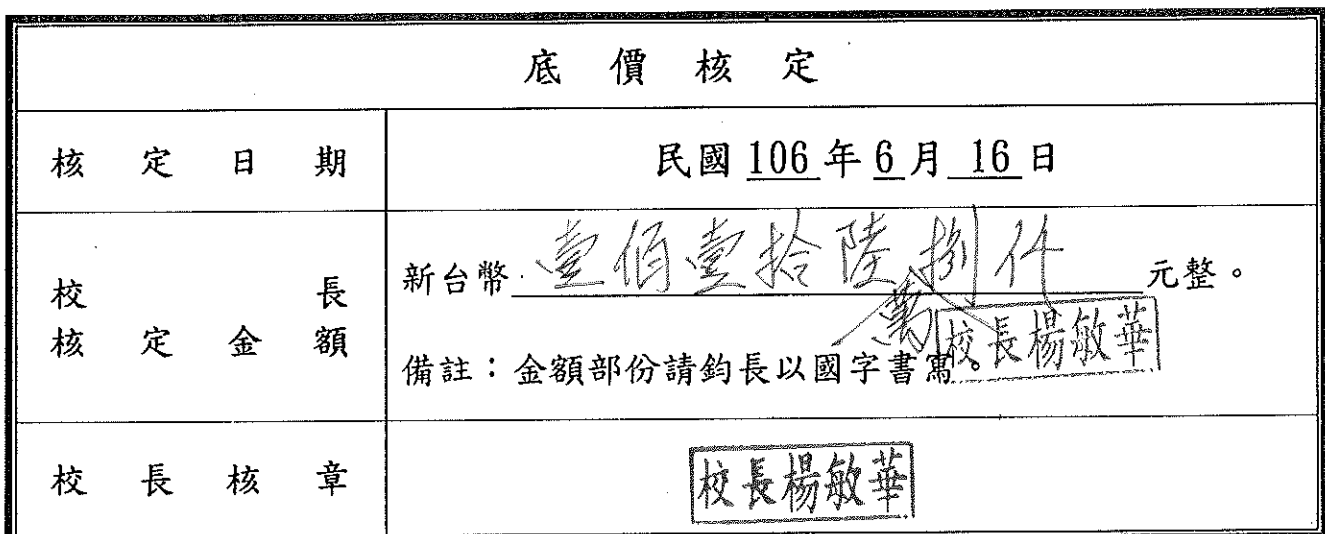 底價核定
核定日期
民國 106 年 6 月 16 日
校長
核定金額
新台幣 壹佰壹拾陸捌仟 元整。
萬
校長楊敏華
備註：金額部份請鈞長以國字書寫。
校長核章
校長楊敏華